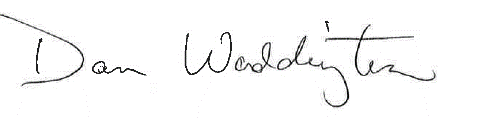 Dan Waddington